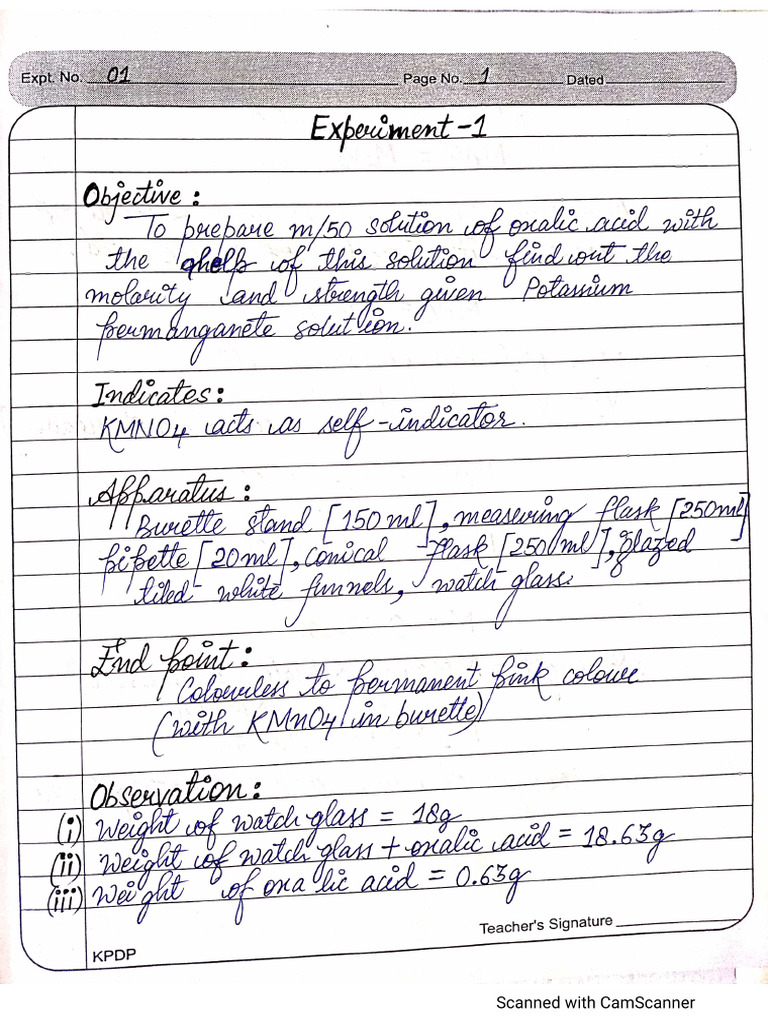 Expt. No. 01 Page No. 1 Dated
Experiment-1
Objective :
To prepare m/50 solution of oxalic acid with
the of this solution find out the
molarity and strength given Potassium
permanganete solution.
Indicates:
KMNO4 acts as self-indicator.
Apparatus :
Burette stand [150 ml], measuring flask [250ml]
pipette [20ml], conical flask [250 ml], glazed
tiled white funnels, watch glass.
End point:
Colourless to permanent pink colour
(with KMnO4 in burette)
Observation:
(i) Weight of watch glass = 18g
(ii) Weight of watch glass + oxalic acid = 18.63g
(iii) Weight of oxalic acid = 0.63g
Teacher's Signature
KPDP
Scanned with CamScanner